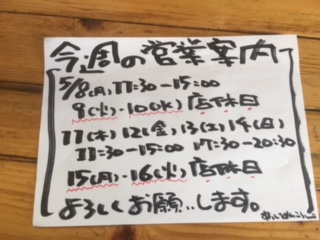 今週の営業案内
5/8(月)、11:30-15:00
9(火)・10(水) 店休日
11(木) 12(金) 13(土) 14(日)
11:30-15:00 17:30-20:30
15(月)・16(火) 店休日
よろしくお願いします。